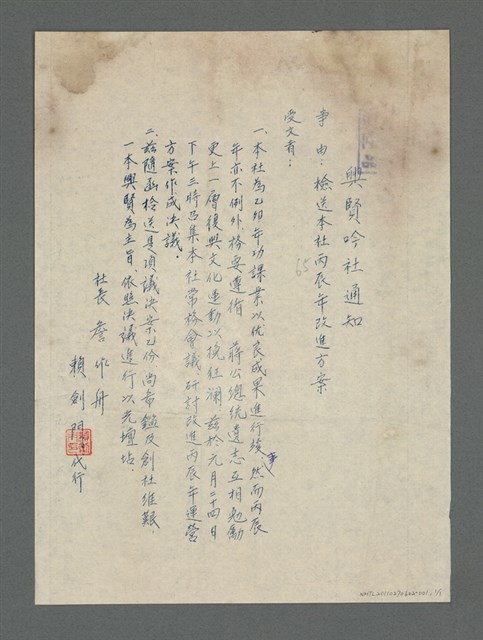 興賢吟社通知
事由：檢送本社丙辰年改進方案
受文者：
65
一、本社為乙卯年功課業以优良成果進行竣事，然而丙辰
年亦不例外，務要遵循 蔣公總統遺志互相勉勵
更上一層復興文化運動以挽狂瀾茲於元月二十四日
下午三時召集本社常務會議，研討改進丙辰年運營
方案作成決議。
二、茲隨函檢送是項議決案乙份尚希鑑及創社維艱，
一本興賢為主旨，依照決議進行以光壇坫。
社長 詹作舟
賴劍門代行